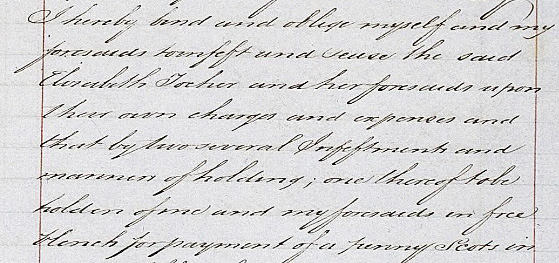 I hereby bind and oblige myself and my
foresaids to infeft and sease the said
Elizabeth Tocher and her foresaids upon
their own charges and expenses and
that by two several Infeftments and
manner of holding; one thereof to be
holden of me and my foresaids in free
blench for payment of a penny Scots in